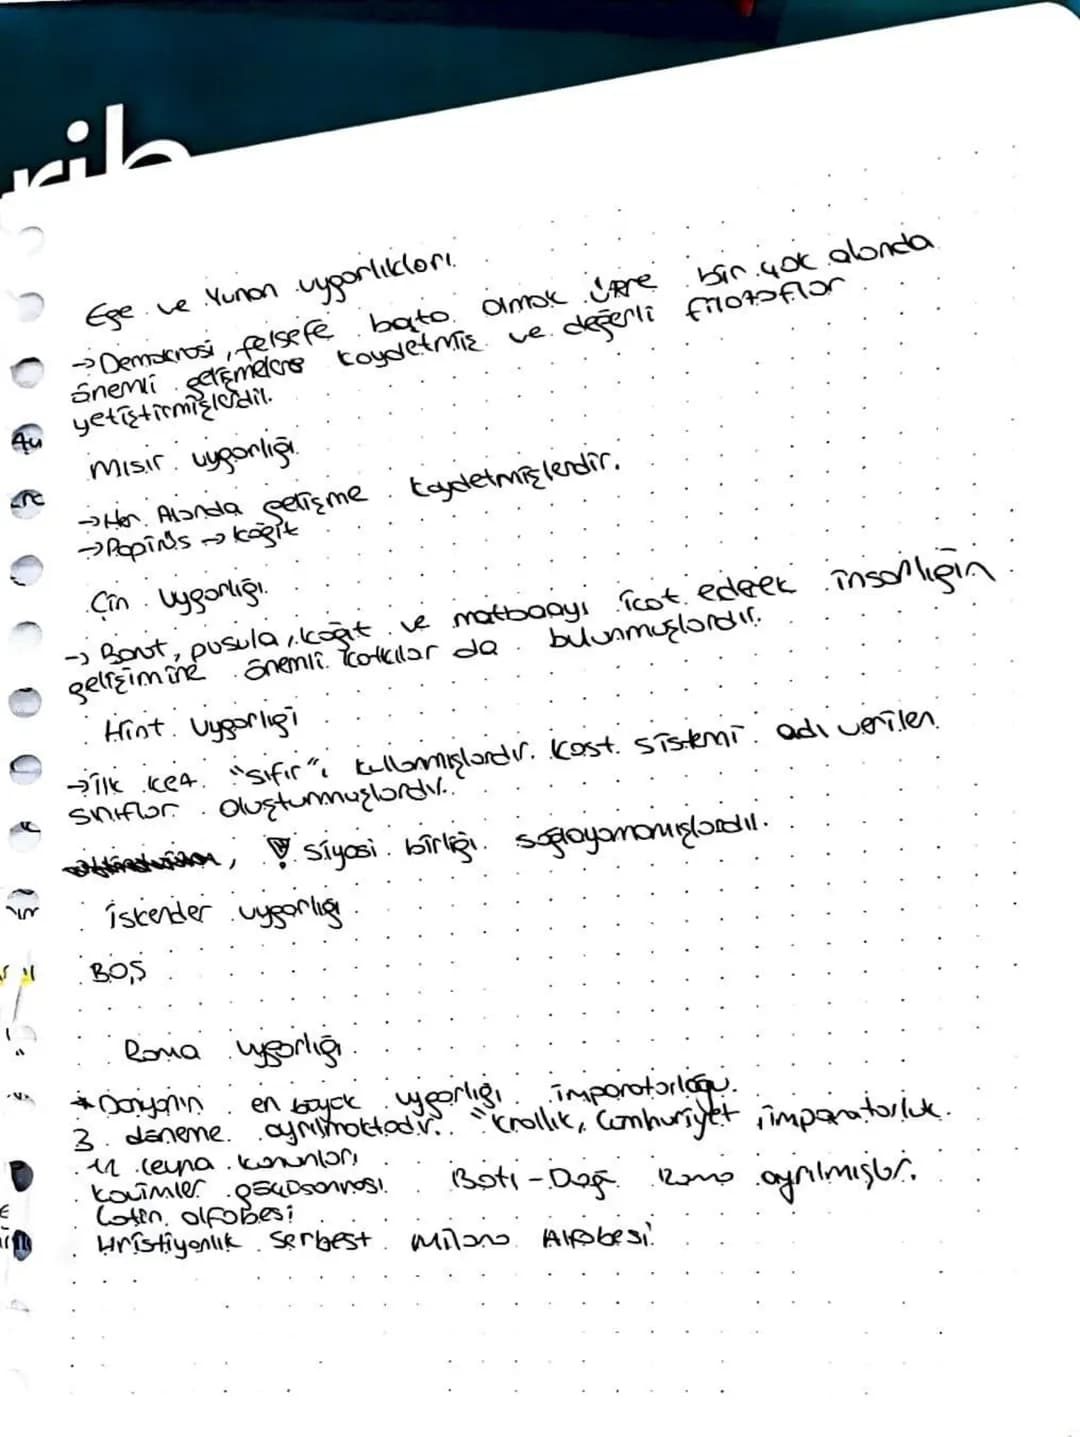 rib
Ege ve Yunan uygarlıkları.
→ Demokrasi, felsefe başta olmak üzere bir çok alanda
önemli gelişmelere kaydetmiş ve değerli filozoflar
yetiştirmişlerdir.
Mısır uygarlığı
→ Her Alanda gelişme kaydetmişlerdir.
→ Papirüs → kağıt
Çin Uygarlığı.
→ Barut, pusula, kağıt ve matbaayı icat ederek insanlığın
gelişimine önemli katkılar da bulunmuşlardır.
Hint Uygarlığı
→ ilk kez "sıfır"ı kullanmışlardır. Kast sistemi adı verilen
sınıflar oluşturmuşlardır.
, Siyasi birliği sağlayamamışlardır.
İskender uygarlığı
BOŞ
Roma uygarlığı
* Dünyanın en büyük uygarlığı imparatorluğu.
3 döneme ayrılmaktadır. "Krallık, Cumhuriyet, imparatorluk.
12 levha kanunları
Kavimler göçü sonrası Batı - Doğu Roma ayrılmıştır.
Latin alfabesi
Hristiyanlık Serbest Milano Alfabesi